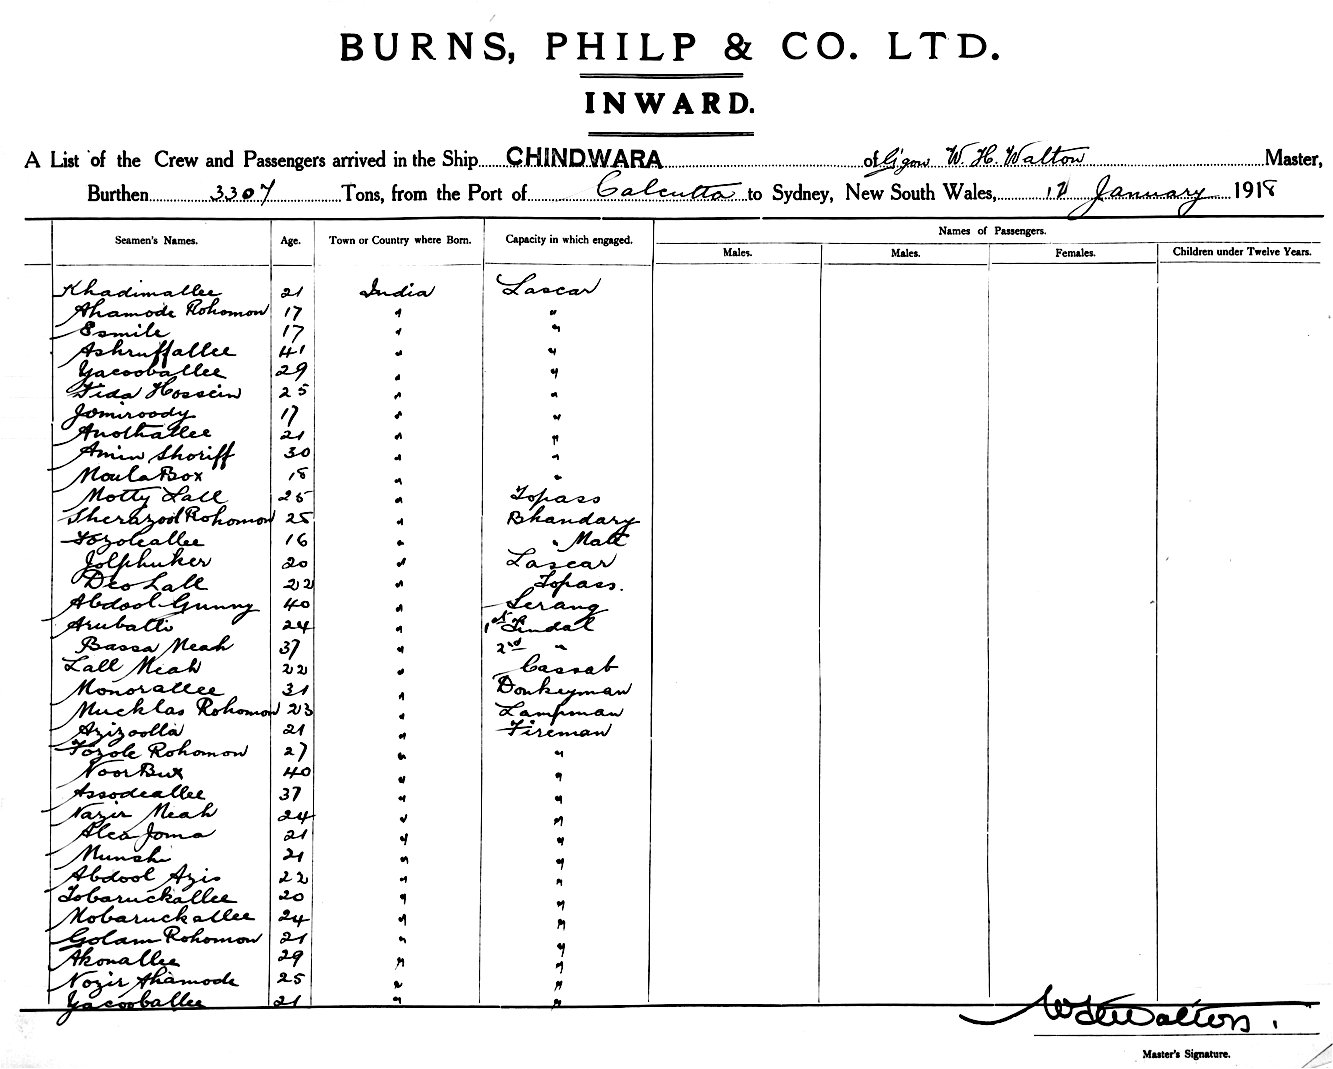 BURNS, PHILP & CO. LTD.
INWARD.
A List of the Crew and Passengers arrived in the Ship CHINDWARA of W. H. Walton Master,
Burthen 3307 Tons, from the Port of Calcutta to Sydney, New South Wales, 12 January 1918
Names of Passengers.
Seamen's Names. Age. Town or Country where Born. Capacity in which engaged. Males. Males. Females. Children under Twelve Years.
Khadimallee 21 India Lascar
Ahamode Rohomon 17 " "
Esmile 17 " "
Ashruffallee 41 " "
Yacooballee 29 " "
Fida Hossein 25 " "
Jomiroody 17 " "
Anothallee 21 " "
Amin Shoriff 30 " "
Moula Box 18 " "
Motty Lall 25 " Topass
Sherazool Rohomon 25 " Bhandary
Fozoleallee 16 " " Mate
Jolphuker 20 " Lascar
Deo Lall 22 " Topass.
Abdool Gunny 40 " Serang
Arubatti 24 " 1st Tindal
Bassa Meah 37 " 2nd "
Lall Meah 22 " Cassab
Monorallee 31 " Donkeyman
Mucklas Rohomon 23 " Lampman
Azizoolla 21 " Fireman
Fozole Rohomon 27 " "
Noor Bux 40 " "
Assodeallee 37 " "
Nazir Meah 24 " "
Alea Joma 21 " "
Munshi 21 " "
Abdool Azis 22 " "
Tobaruckallee 20 " "
Mobaruckallee 24 " "
Golam Rohomon 21 " "
Akonallee 29 " "
Nozir Ahamode 25 " "
Yacooballee 21 " "
W H Walton.
Master's Signature.